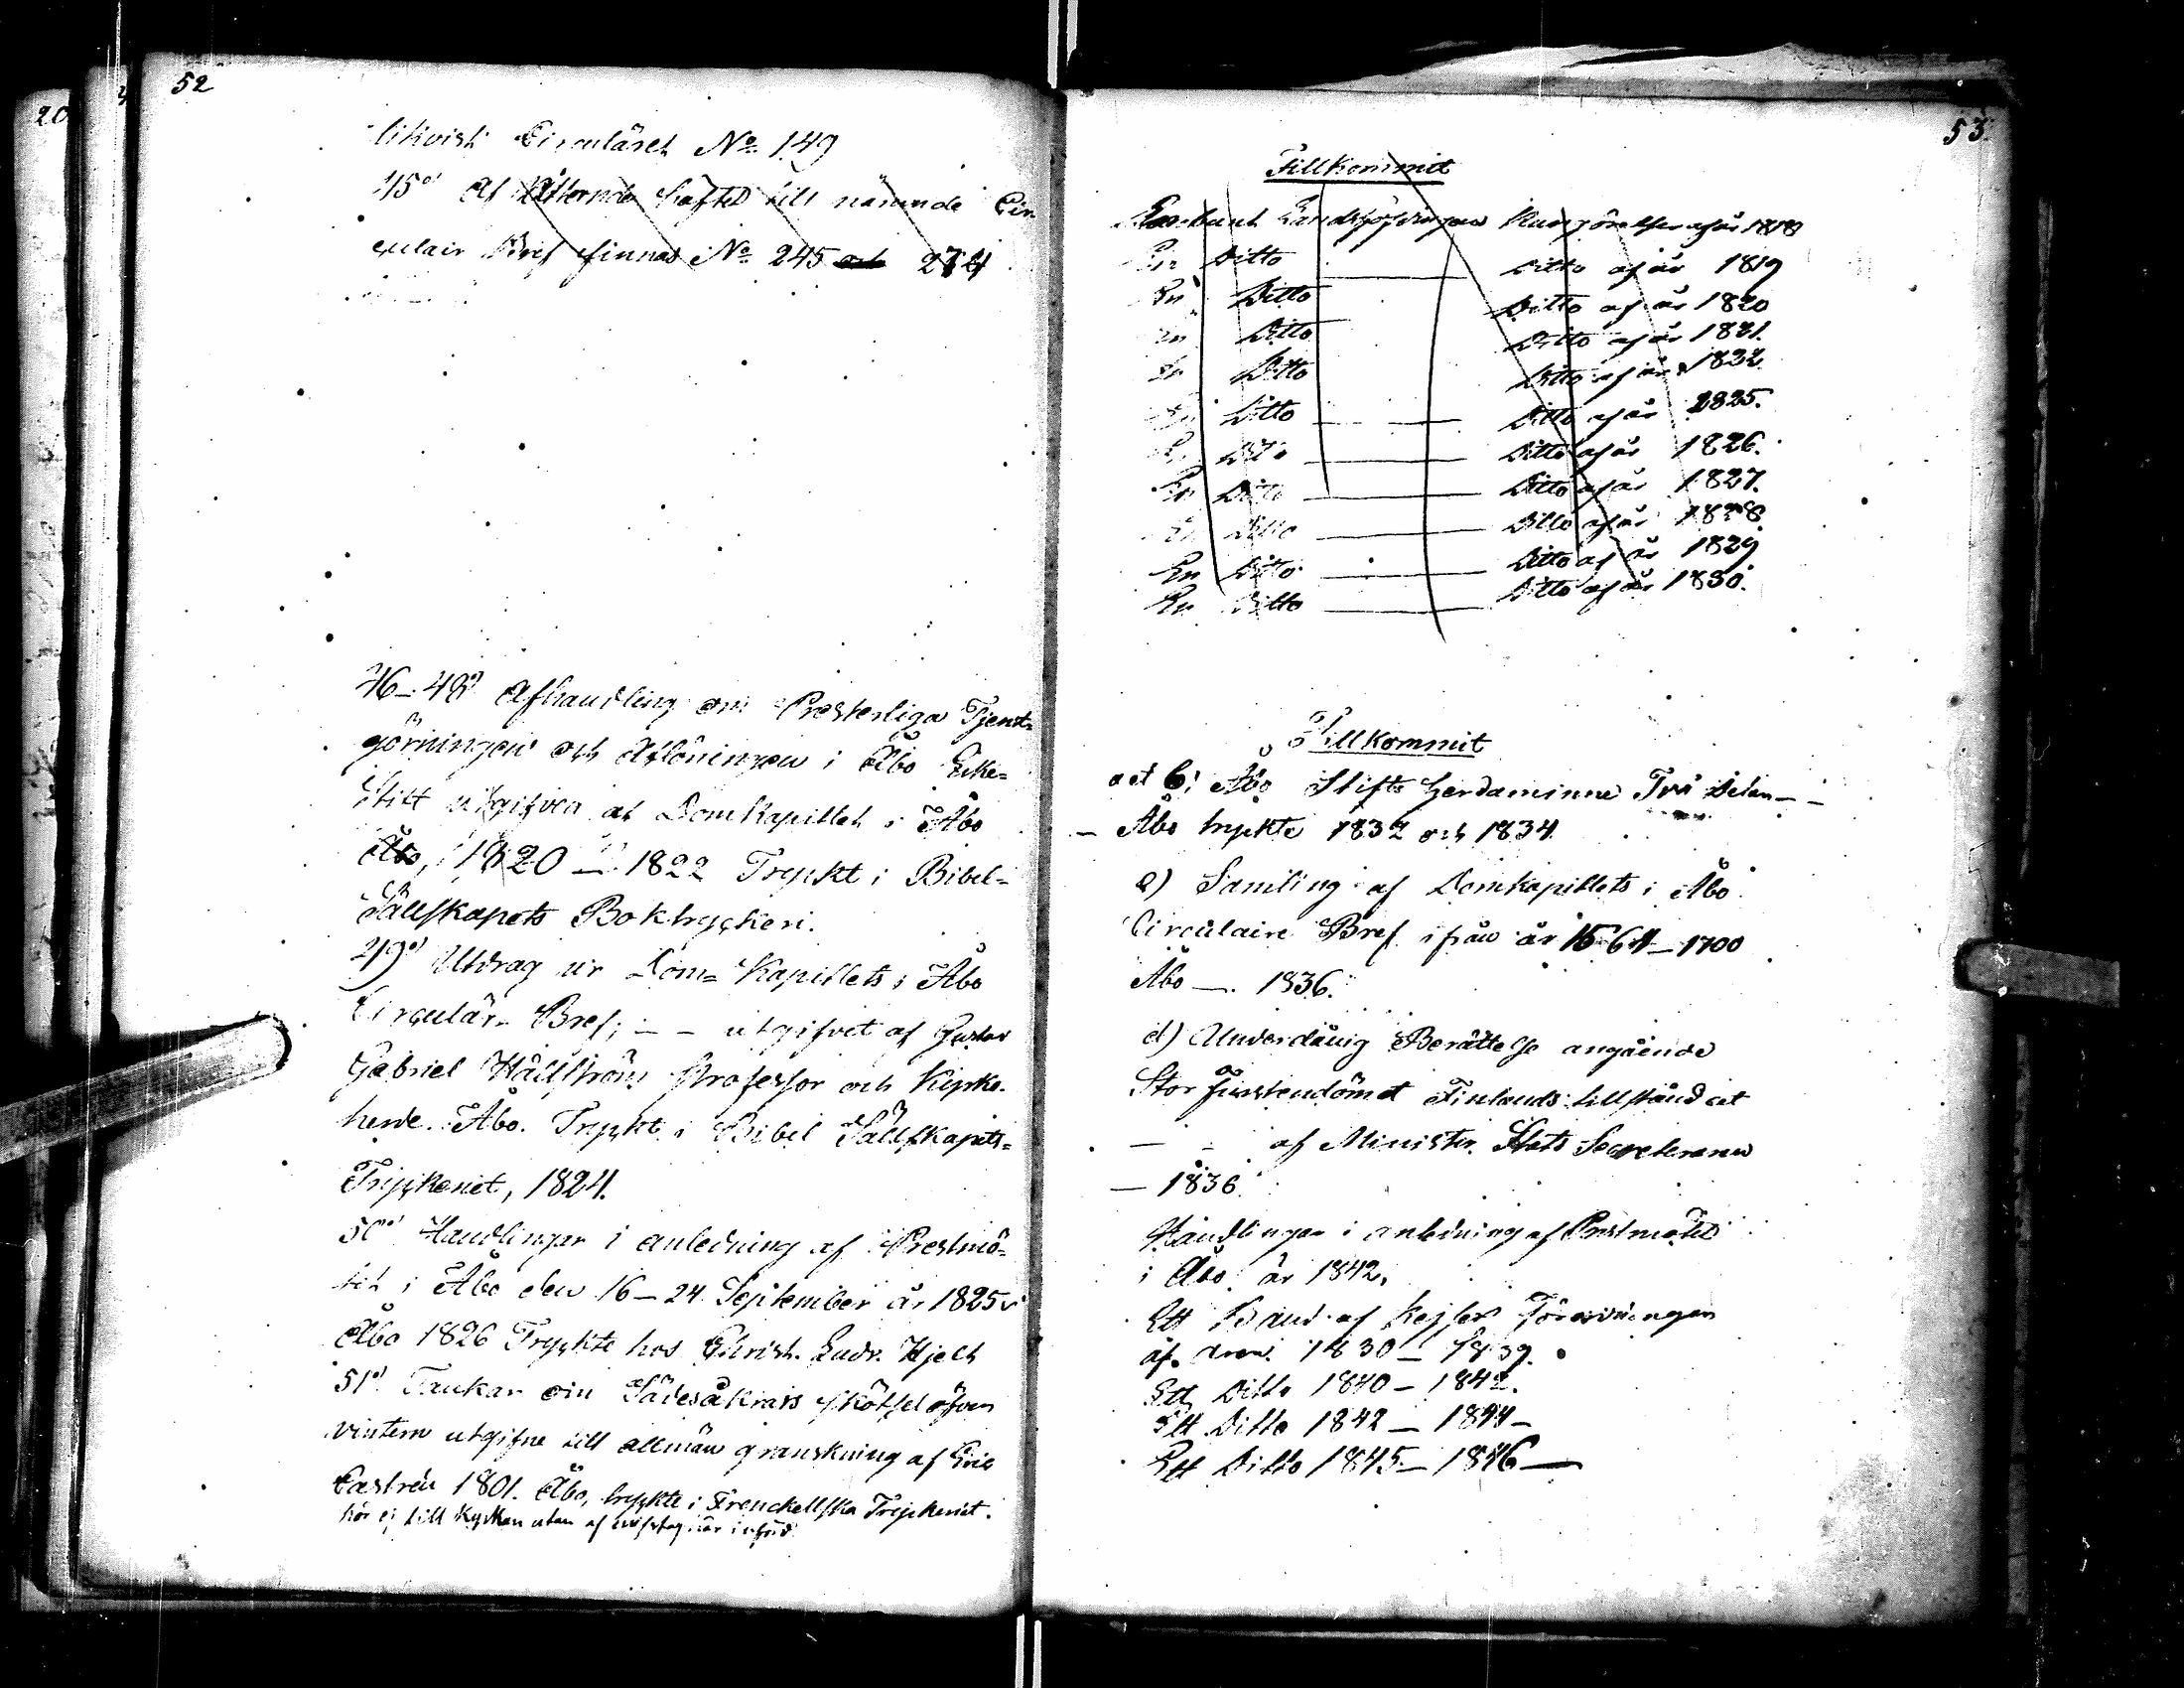 52
Circuläret No 149
45o/ Af Åttonde häftet till nämnde Cir
culair Bref finnas No 245 och 274
46-48o/ Afhandling om Presterliga Tjenst=
göringen och Aflöningen i Åbo Erke=
stift utgifven af Domkapitlet i Åbo
Åbo, 1820 — 1822 Tryckt i Bibel=
Sällskapets Boktryckeri.
49o/ Utdrag ur Dom= Kapitlets i Åbo
Circulär Bref; — — utgifvet af Gustav
Gabriel Hällström Professor och Kyrko=
herde. Åbo. Tryckt i Bibel Sällskapets=
Tryckeriet, 1824.
50o/ Handlingar i anledning af Prestmö=
tet i Åbo den 16-24 September år 1825
Åbo 1826 Tryckte hos Christ. Ludv. Hjelt
51o/ Tankar om Sädesåkrars skötsel öfver
vintern utgifne till allmän granskning af Eric
Castrén 1801. Åbo, tryckte i Frenckellska Tryckeriet.
hör ej till Kyrkan utan af misstag här införd
53.
Tillkommit
Landshöfdingens Kungörelser af år 1818
En Ditto — Ditto af år 1819
En Ditto Ditto af år 1820
En Ditto Ditto af år 1821.
En Ditto Ditto af år 1832.
En Ditto — Ditto af år 1825.
En Ditto — Ditto af år 1826.
En Ditto — Ditto af år 1827.
En Ditto — Ditto af år 1828
En Ditto — Ditto af år 1829
En Ditto — Ditto af år 1830.
Tillkommit
a et b; Åbo Stifts herdaminne Två delar — —
— Åbo tryckte 1832 och 1834.
c) Samling af Domkapitlets i Åbo
Circulaire Bref ifrån år 1564-1700
Åbo — 1836.
d) Underdånig Berättelse angående
Stor Furstendömet Finlands tillstånd
— — af Minister Stats Secreteraren
— 1836.
Handlingar i anledning af Prestmötet
i Åbo år 1842.
Ett Band af Kejserl Förordningar
af 1830 — 1839.
Ett Ditto 1840 — 1842.
Ett Ditto 1842 — 1844 —
Ett Ditto 1845 — 1846 —